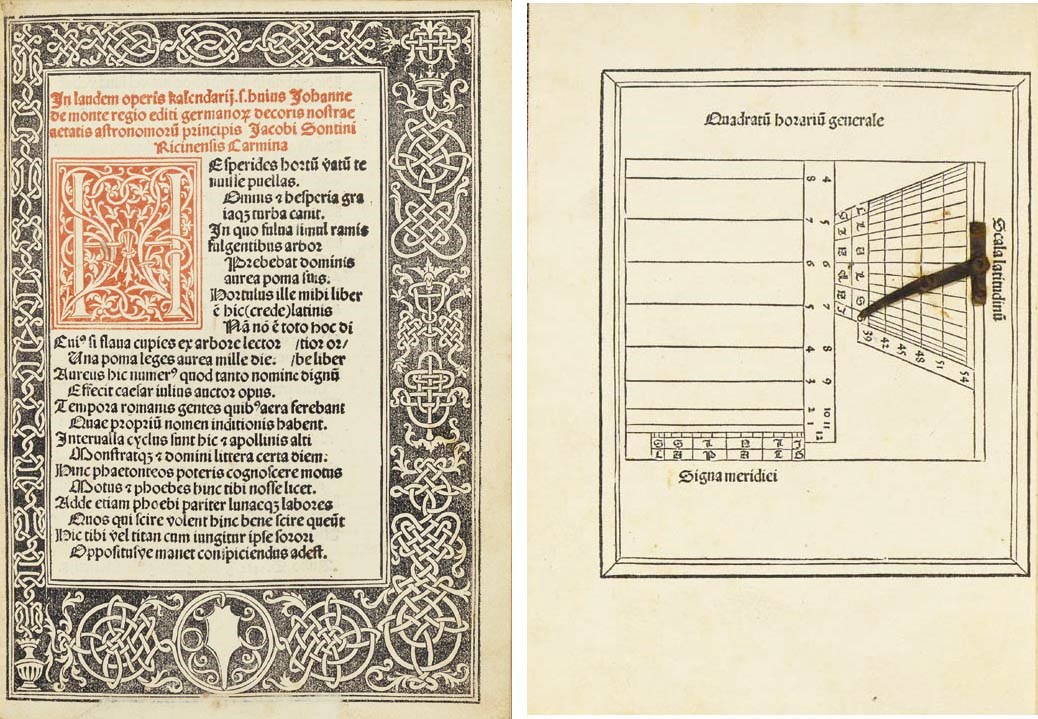 In laudem operis kalendarij.f.huius Johanne
de monte regio editi germanoꝝ decoris nostrae
aetatis astronomorū principis Jacobi Sontini
Ricinensis Carmina
Esperides hortū vatū te
nuisse puellas.
Omnis ⁊ hesperia gra
iaqꝫ turba canit.
In quo fulua simul ramis
fulgentibus arbor
Prebebat dominis
aurea poma suis.
Hortulus ille mihi liber
ē hic(crede)latinis
Nā nō ē toto hoc di
Cuiꝰ si flaua cupies ex arbore lector /tior or/
Una poma leges aurea mille die. /be liber
Aureus hic numerꝰ quod tanto nomine dignū
Effecit caesar iulius auctor opus.
Tempora romanis gentes quibꝰaera ferebant
Quae propriū nomen indi­tionis habent.
Interualla cyclus sunt hic ⁊ apollinis alti
Monstratqꝫ ⁊ domini littera certa diem.
Hinc phaetonteos poteris cognoscere motus
Motus ⁊ phoebes hinc tibi nosse licet.
Adde etiam phoebi pariter lunaeqꝫ labores
Quos qui scire volent hinc bene scire queūt
Hic tibi vel titan cum iungitur ipse sorori
Oppositusve manet conspiciendus adest.
Quadratū horariū generale
8 4
7 5
6 6
5 7
4 8
3 9
2 10
1 11
12
Scala latitudinū
39 42 45 48 51 54
Signa meridiei